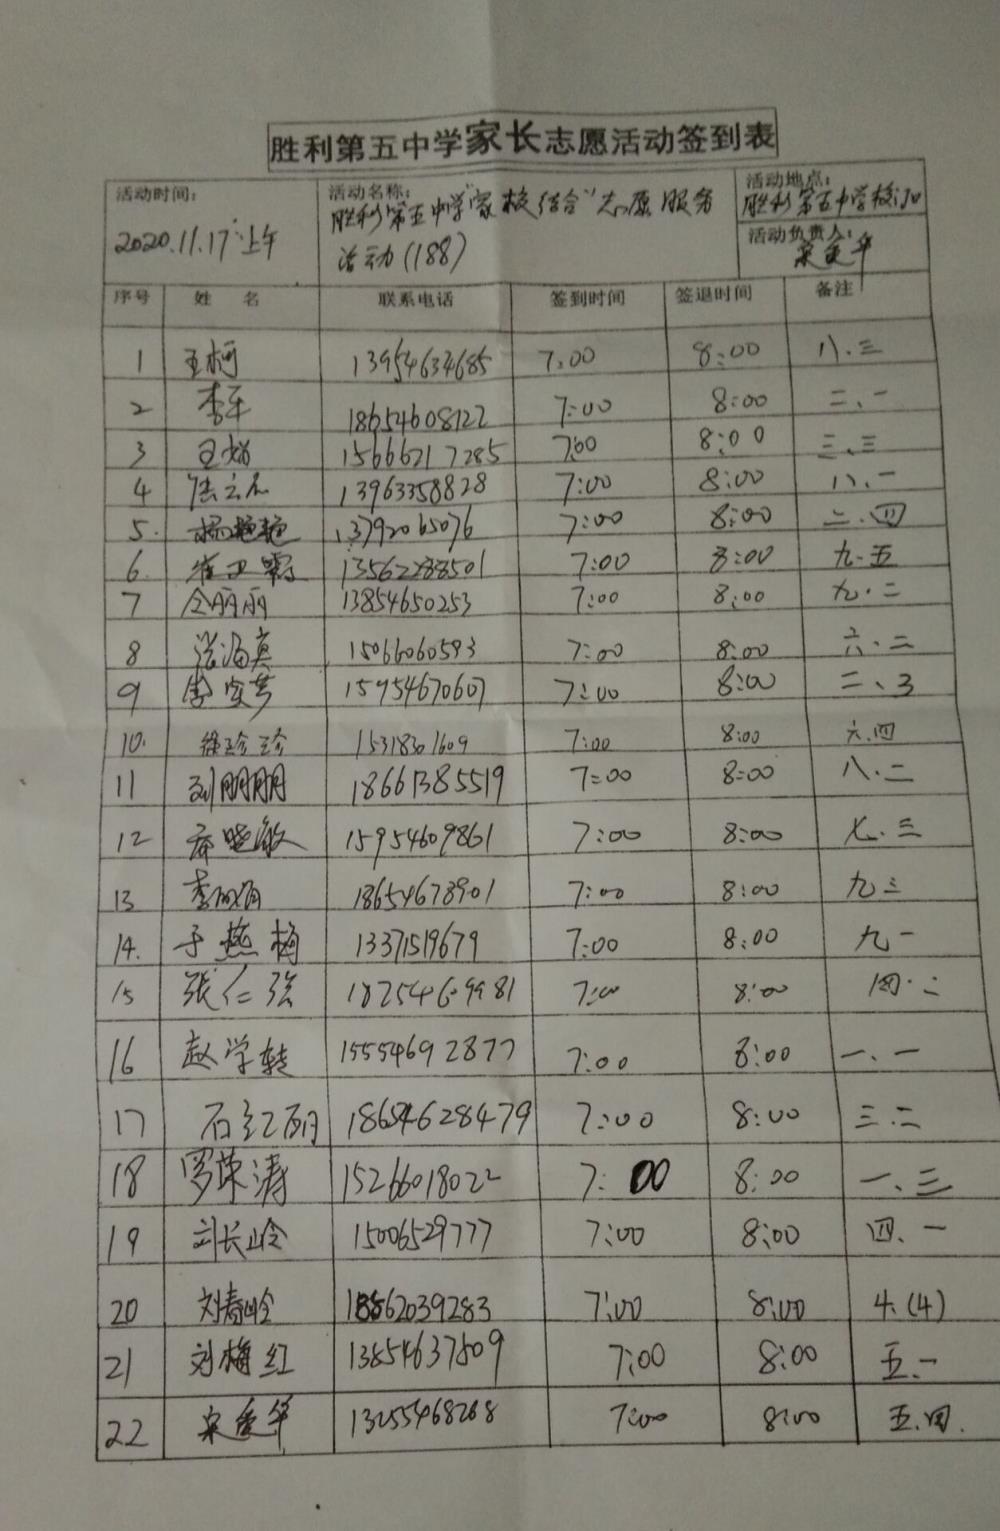 胜利第五中学家长志愿活动签到表
活动时间: 活动名称: 活动地点:
2020.11.17上午 胜利第五中学"家校结合"志愿服务 胜利第五中学校门口
活动(188) 活动负责人:
宋爱华
序号 姓名 联系电话 签到时间 签退时间 备注
1 王柯 13954634685 7:00 8:00 八.三
2 李军 18654608122 7:00 8:00 二、一
3 王娟 15666217285 7:00 8:00 三、三
4 13963358828 7:00 8:00 八、一
5. 杨艳艳 13792065076 7:00 8:00 二.四
6. 崔卫霞 13562288501 7:00 8:00 九.五
7 仝丽丽 13854650253 7:00 8:00 九.二
8 张海真 15066060593 7:00 8:00 六.二
9 李安芳 15954670607 7:00 8:00 二、3
10. 徐珍珍 15318301609 7:00 8:00 六.四
11 刘朋朋 18661385519 7:00 8:00 八.二
12 晓敏 15954609861 7:00 8:00 七.三
13 李 娟 18654678901 7:00 8:00 九三
14. 于燕梅 13371519679 7:00 8:00 九一
15 张仁强 18254609981 7:00 8:00 四.二
16 赵学转 15554692877 7:00 8:00 一、一
17 石红丽 18654628479 7:00 8:00 三.二
18 罗荣涛 15266018022 7:00 8:00 一、三
19 刘长岭 15006529777 7:00 8:00 四、一
20 刘春岭 18562039283 7:00 8:00 4.(4)
21 刘梅红 13854637509 7:00 8:00 五.一
22 宋爱华 13255468268 7:00 8:00 五.四.